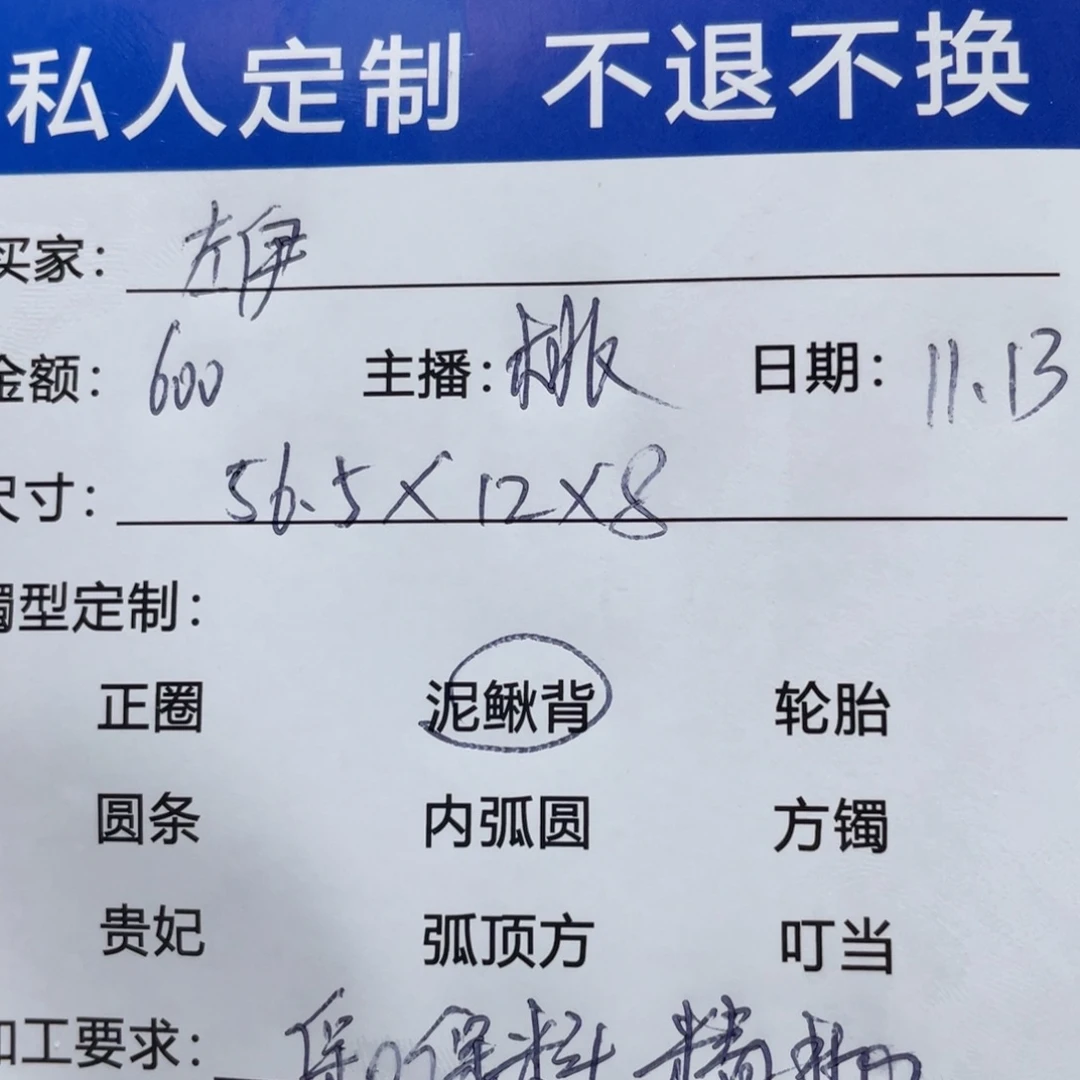 私人定制 不退不换
买家：左伊
金额：600 主播： 日期：11.13
尺寸：56.5×12×8
镯型定制：
正圈 泥鳅背 轮胎
圆条 内弧圆 方镯
贵妃 弧顶方 叮当
加工要求：